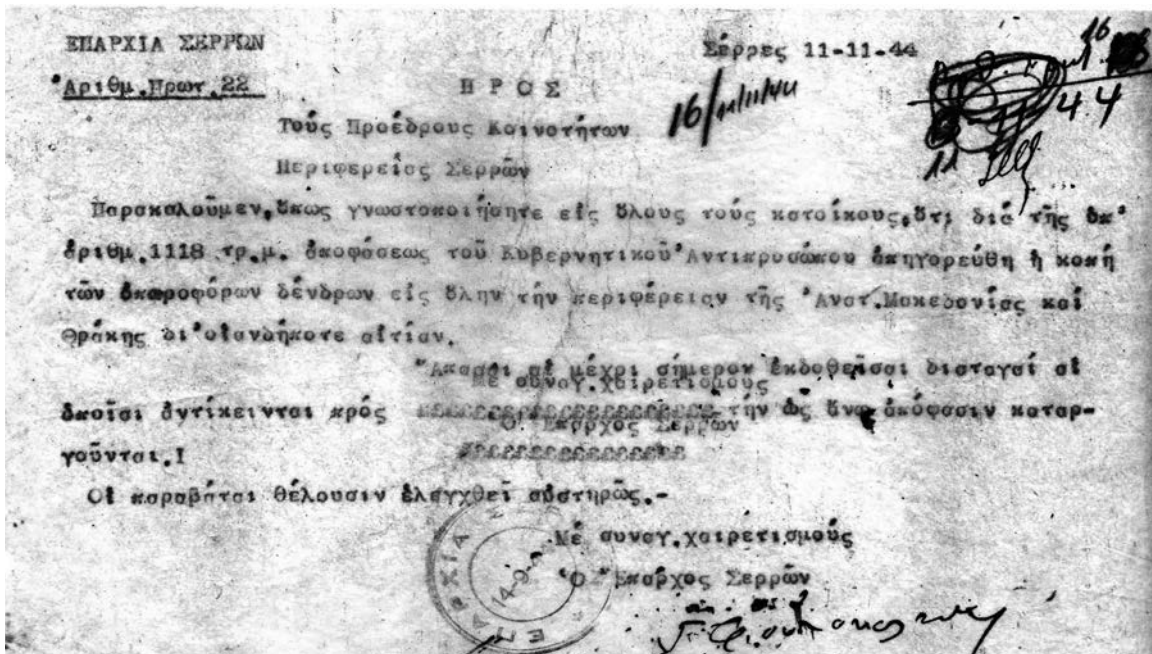 ΕΠΑΡΧΙΑ ΣΕΡΡΩΝ
Σέρρες 11-11-44
Ἀριθμ.Πρωτ.22
Π Ρ Ο Σ
16/11/44
44
11
Τούς Προέδρους Κοινοτήτων
Περιφερείας Σερρῶν
Παρακαλοῦμεν,ὅπως γνωστοποιήσητε είς ὅλους τούς κατοίκους,ὅτι διά τῆς ὑπ'
ἀριθμ.1118 τρ.μ. ἀποφάσεως τοῦ Κυβερνητικοῦ Ἀντιπροσώπου ἀπηγορεύθη ἡ κοπή
τῶν ὀπωροφόρων δένδρων είς ὅλην τήν περιφέρειαν τῆς Ἀνατ.Μακεδονίας καί
Θράκης δι'οἱανδήποτε αἰτίαν.
Ἅπασαι αἱ μέχρι σήμερον ἐκδοθεῖσαι διαταγαί αἱ
Μέ συναγ.χαιρετισμούς
ὁποῖαι ἀντίκεινται πρός τήν ὡς ἄνω ἀπόφασιν καταρ-
Ὁ Ἔπαρχος Σερρῶν
γοῦνται.!
Οἱ παραβάται θέλουσιν ἐλεγχθεῖ αὐστηρῶς.-
Μέ συναγ.χαιρετισμούς
Ὁ Ἔπαρχος Σερρῶν
ΕΠΑΡΧΙΑ